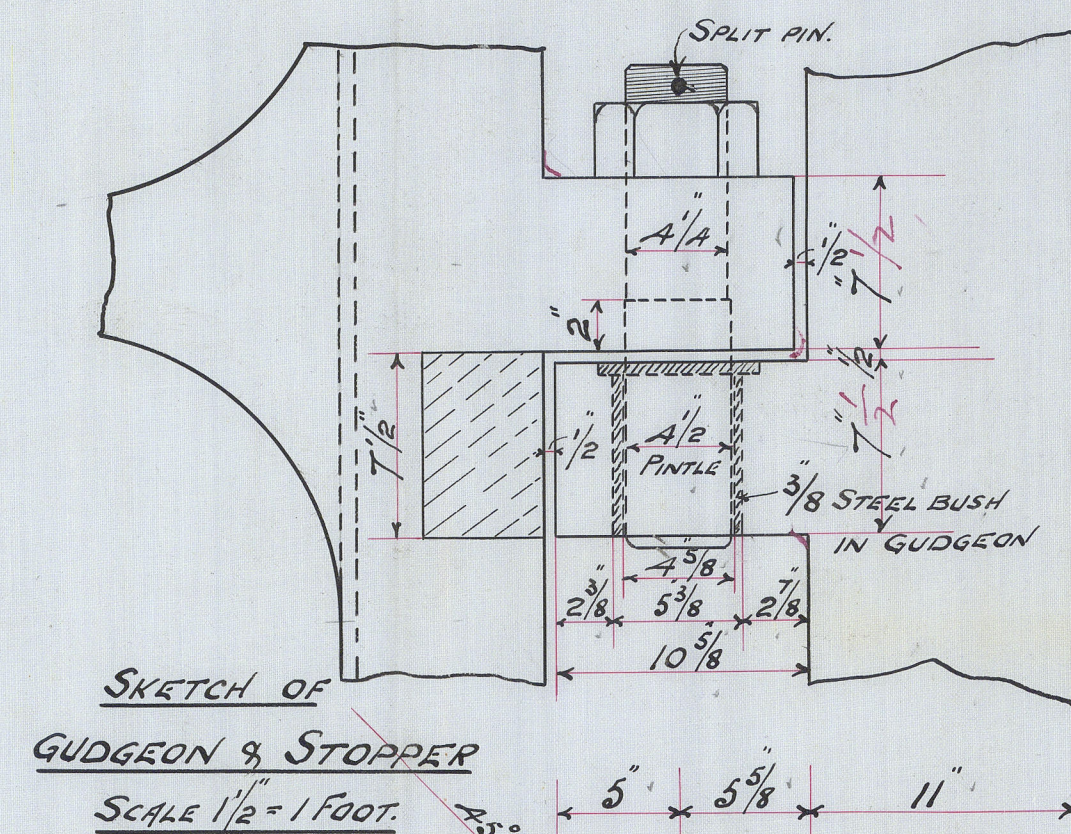 SPLIT PIN.
4 1/4"
1/2"
7 1/2"
2"
1/2"
7 1/2"
7 1/2"
1/2"
4 1/2"
PINTLE
3/8" STEEL BUSH
IN GUDGEON
4 5/8"
2 3/8" 5 3/8" 2 7/8"
10 5/8"
SKETCH OF
GUDGEON & STOPPER
SCALE 1 1/2" = 1 FOOT.
45°
5" 5 5/8" 11"